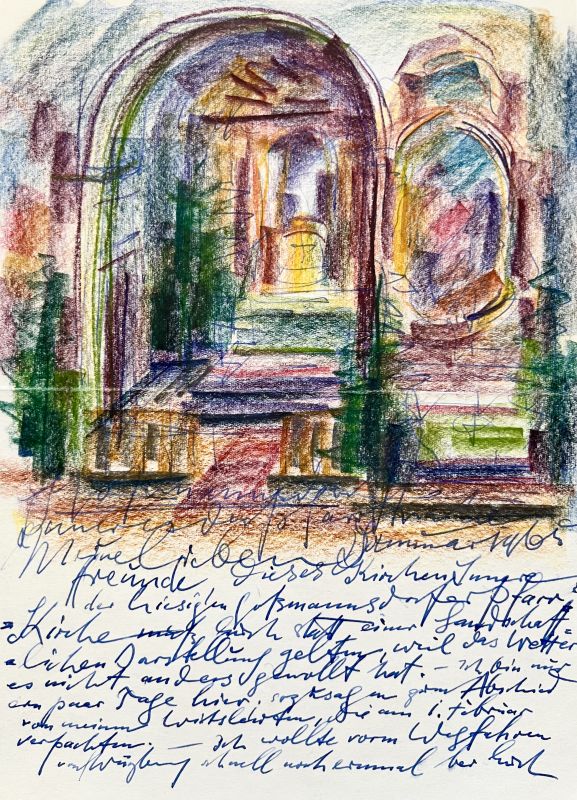 Meine lieben Januar 1965
Freunde dieses Kircheninnere
der hiesigen Goßmannsdorfer Pfarr=
Kirche muß auch statt einer landschaft=
lichen Darstellung gelten, weil das Wetter
es nicht anders gewollt hat. – ich bin nur
ein paar Tage hier, sozusagen zum Abschied
von meinen Wirtsleuten, die am 1. Februar
verpachten. – ich wollte vorm Wegfahren
schnell noch einmal bei Euch